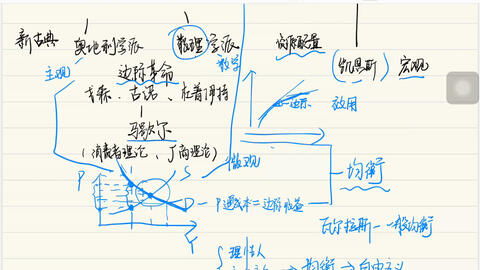 新古典 奥地利学派 数理学派
主观 边际革命 数学
马歇尔
(消费者理论、厂商理论)
(凯恩斯) 宏观
边际 效用
微观
均衡
P S
D P 边际成本=边际收益
瓦尔拉斯——一般均衡
Y
理性人
均衡 → 自由主义